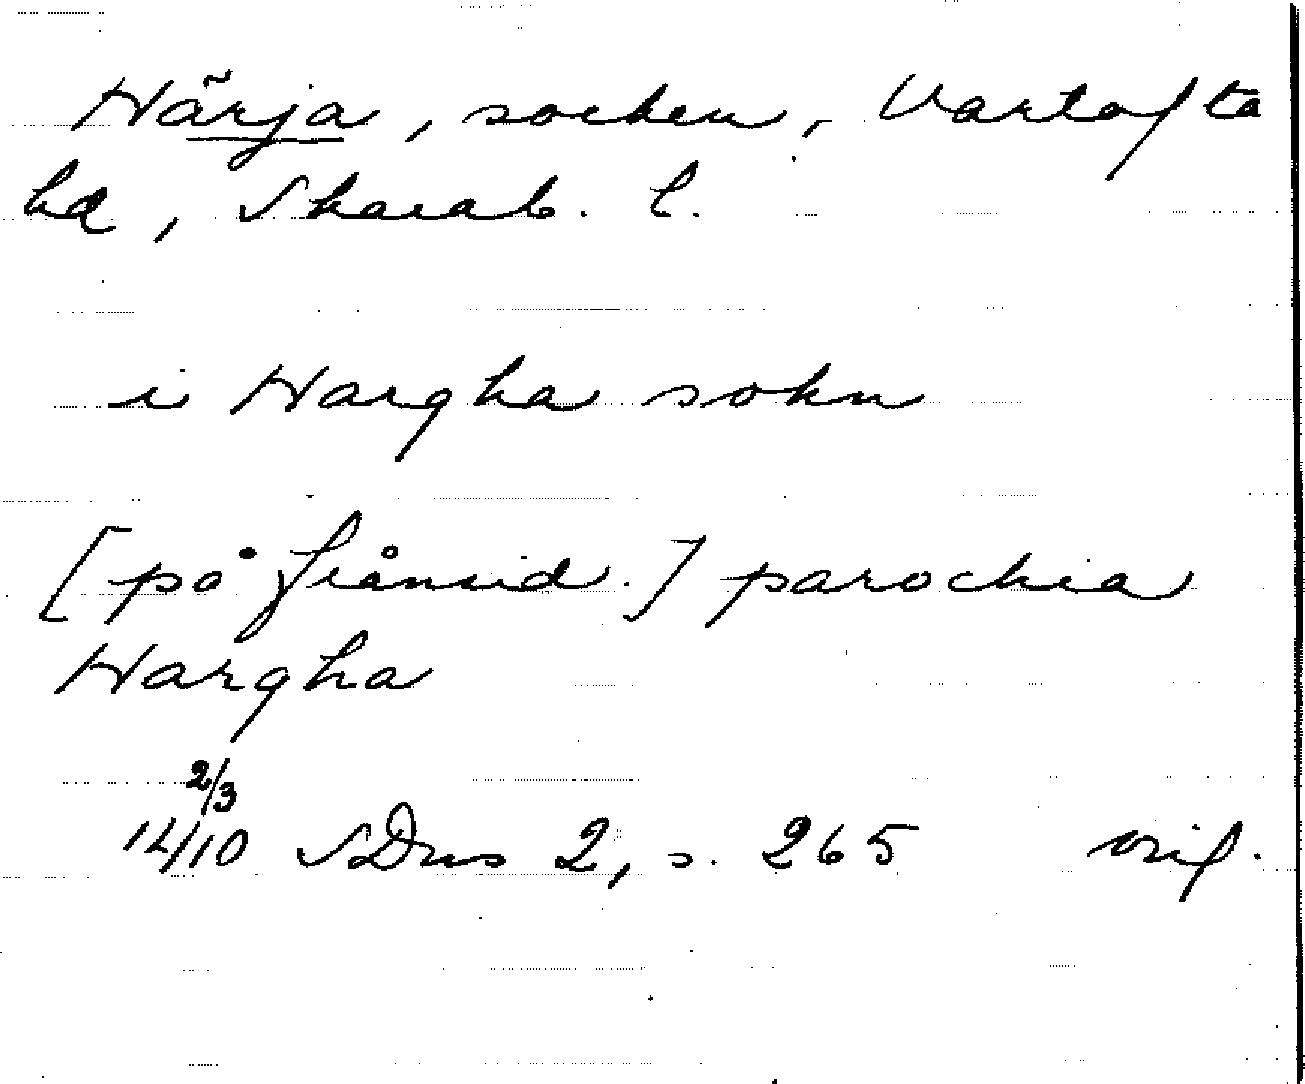 Härja, socken, Vartofta
hd, Skarab. l.
i Hargha sokn
[på frånsid.] parochia
Hargha
2/3
14/10 SDns 2, s. 265 orig.